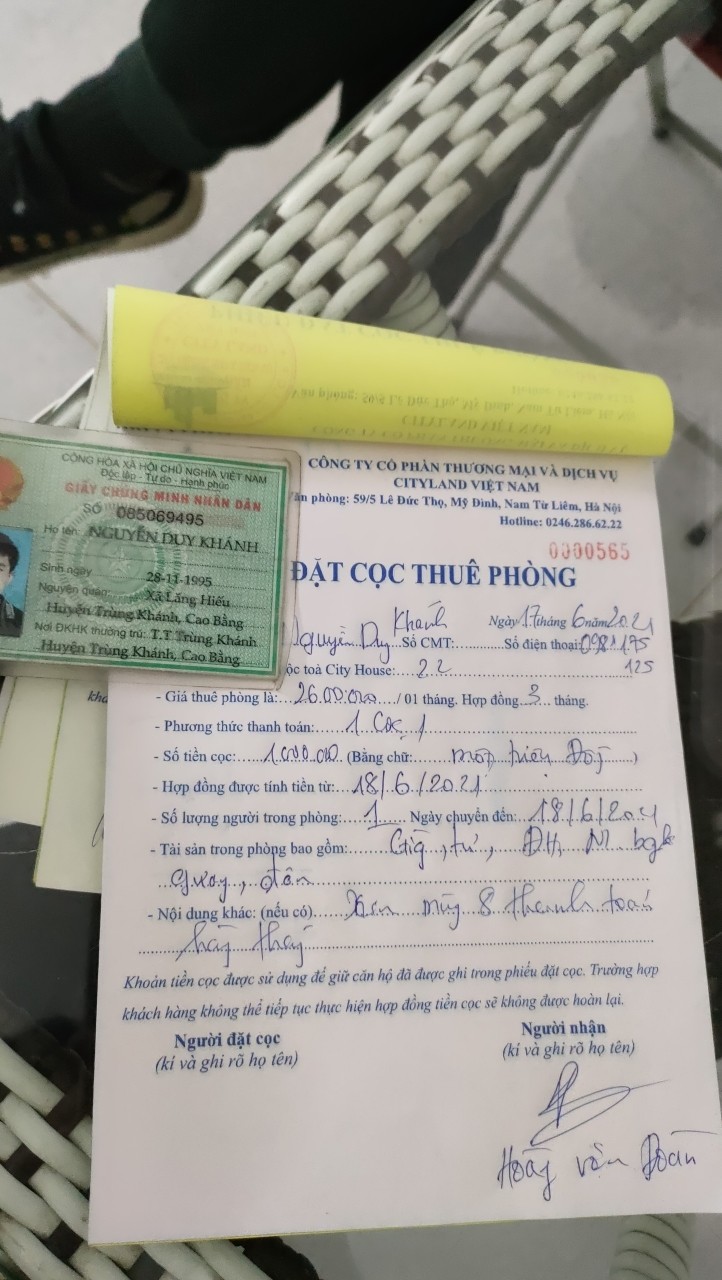 CỘNG HÒA XÃ HỘI CHỦ NGHĨA VIỆT NAM
Độc lập - Tự do - Hạnh phúc
GIẤY CHỨNG MINH NHÂN DÂN
SỐ 085069495
Họ tên: NGUYỄN DUY KHÁNH
Sinh ngày 28-11-1995
Nguyên quán: Xã Lăng Hiếu
Huyện Trùng Khánh, Cao Bằng
Nơi ĐKHK thường trú: T.T Trùng Khánh
Huyện Trùng Khánh, Cao Bằng
CÔNG TY CỔ PHẦN THƯƠNG MẠI VÀ DỊCH VỤ
CITYLAND VIỆT NAM
Văn phòng: 59/5 Lê Đức Thọ, Mỹ Đình, Nam Từ Liêm, Hà Nội
Hotline: 0246.286.62.22
0000565
ĐẶT CỌC THUÊ PHÒNG
Ngày 17 tháng 6 năm 2021
Nguyễn Duy Khánh Số CMT: Số điện thoại: 0981175
125
toà City House: 2.2
- Giá thuê phòng là: 26.00.000 / 01 tháng. Hợp đồng 3 tháng.
- Phương thức thanh toán: 1 Cọc 1
- Số tiền cọc: 1.000.000 (Bằng chữ: một triệu Đồng )
- Hợp đồng được tính tiền từ: 18/6/2021
- Số lượng người trong phòng: 1 Ngày chuyển đến: 18/6/2021
- Tài sản trong phòng bao gồm: Gig, tủ, ĐH, NL
- Nội dung khác: (nếu có) 8 thanh toán
Khoản tiền cọc được sử dụng để giữ căn hộ đã được ghi trong phiếu đặt cọc. Trường hợp
khách hàng không thể tiếp tục thực hiện hợp đồng tiền cọc sẽ không được hoàn lại.
Người đặt cọc
(kí và ghi rõ họ tên)
Người nhận
(kí và ghi rõ họ tên)
Hoàng văn Đoàn